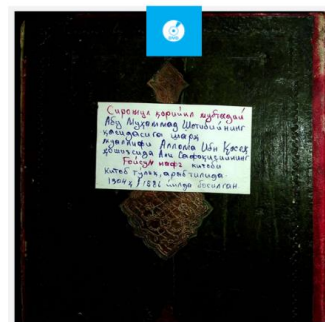 Сирожул қорийил мубтадий
Абу Муҳаммад Шотибийнинг
қасидасига шарҳ
муаллифи Аллома Ибн Қосеҳ
ҳошиясида Али Сафоқусийнинг
Ғойсун нафъ китоби
китоб тулиқ, араб тилида.
1304ҳ / 1886 йилда босилган.